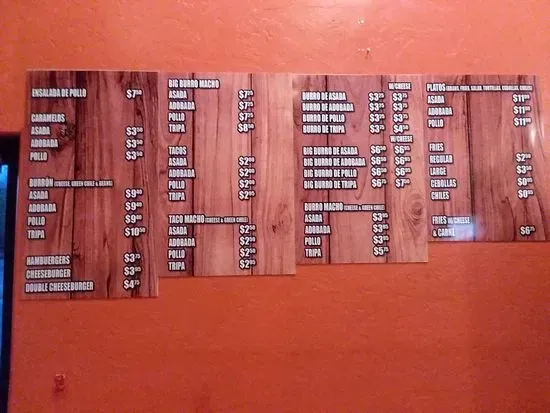 ENSALADA DE POLLO $7⁵⁰
CARAMELOS
ASADA $3⁵⁰
ADOBADA $3⁵⁰
POLLO $3⁵⁰
BURRÓN (CHEESE, GREEN CHILE & BEANS)
ASADA $9
ADOBADA $9
POLLO $9
TRIPA $10⁵⁰
HAMBUERGERS $3⁷⁵
CHEESEBURGER $3⁹⁵
DOUBLE CHEESEBURGER $4⁷⁵
BIG BURRO MACHO
ASADA $7
ADOBADA $7
POLLO $7
TRIPA $8⁵⁰
TACOS
ASADA $2
ADOBADA $2
POLLO $2
TRIPA $2
TACO MACHO (CHEESE & GREEN CHILE)
ASADA $2
ADOBADA $2
POLLO $2
TRIPA $2
W/CHEESE
BURRO DE ASADA $3 $3
BURRO DE ADOBADA $3 $3
BURRO DE POLLO $3 $3
BURRO DE TRIPA $3 $4
W/CHEESE
BIG BURRO DE ASADA $6 $6
BIG BURRO DE ADOBADA $6 $6
BIG BURRO DE POLLO $6 $6
BIG BURRO DE TRIPA $6 $7
BURRO MACHO (CHEESE & GREEN CHILE)
ASADA $3
ADOBADA $3
POLLO $3
TRIPA $5
PLATOS (BEANS, FRIES, SALSA, TORTILLAS, CEBOLLAS, CHILES)
ASADA $11
ADOBADA $11
POLLO $11
FRIES
REGULAR $2
LARGE $3
CEBOLLAS $0
CHILES $0
FRIES W/CHEESE
& CARNE $6